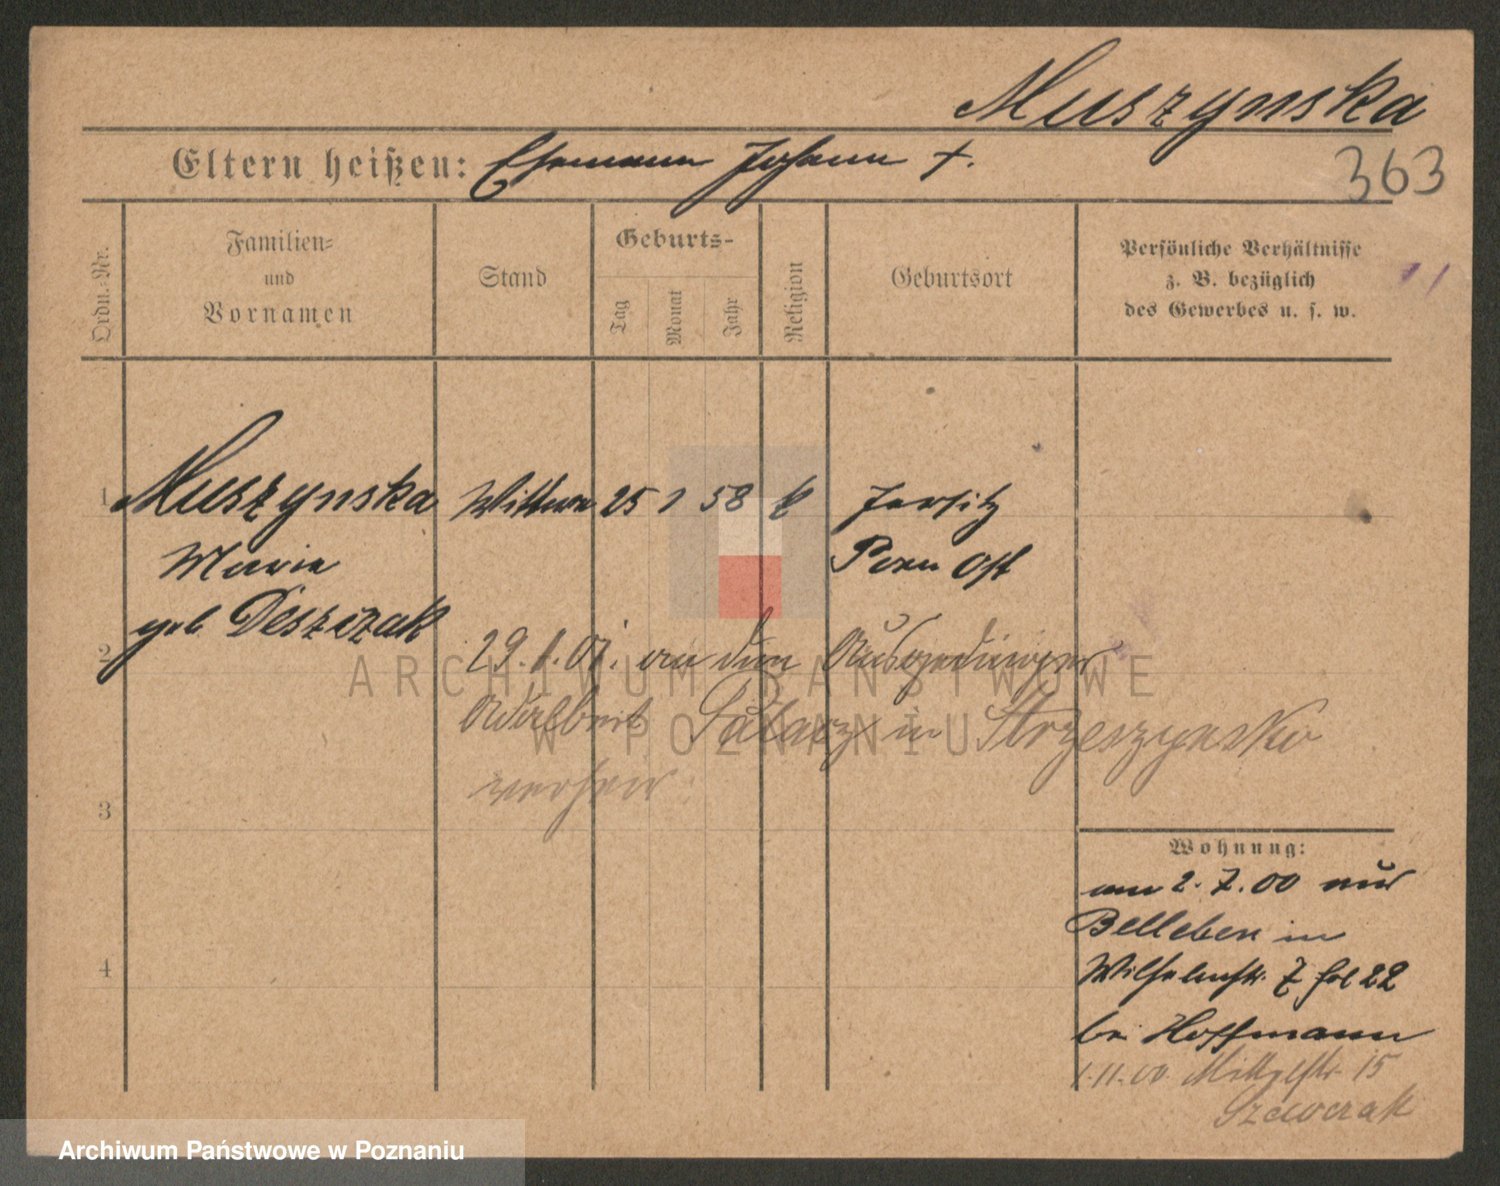 Muszynska
Eltern heißen: Ehemann Johann †.
363
Ordn.-Nr.
Familien-
und
Vornamen
Stand
Geburts-
Tag
Monat
Jahr
Religion
Geburtsort
Persönliche Verhältnisse
z. B. bezüglich
des Gewerbes u. s. w.
1 Muszynska Wittwe 25 1 58 k Jersitz
Marie Posen Ost
geb Deszczak
2 29.1.01. an den Ausgedinger
Adalbert Palacz in Strzeszynsko
verheir
3
Wohnung:
am 2.7.00 aus
Belleben in
4
Wilhelmstr. 7 Hol 22
bei Hoffmann
1.11.00 15
Szewczak
ARCHIWUM PAŃSTWOWE
W POZNANIU
Archiwum Państwowe w Poznaniu